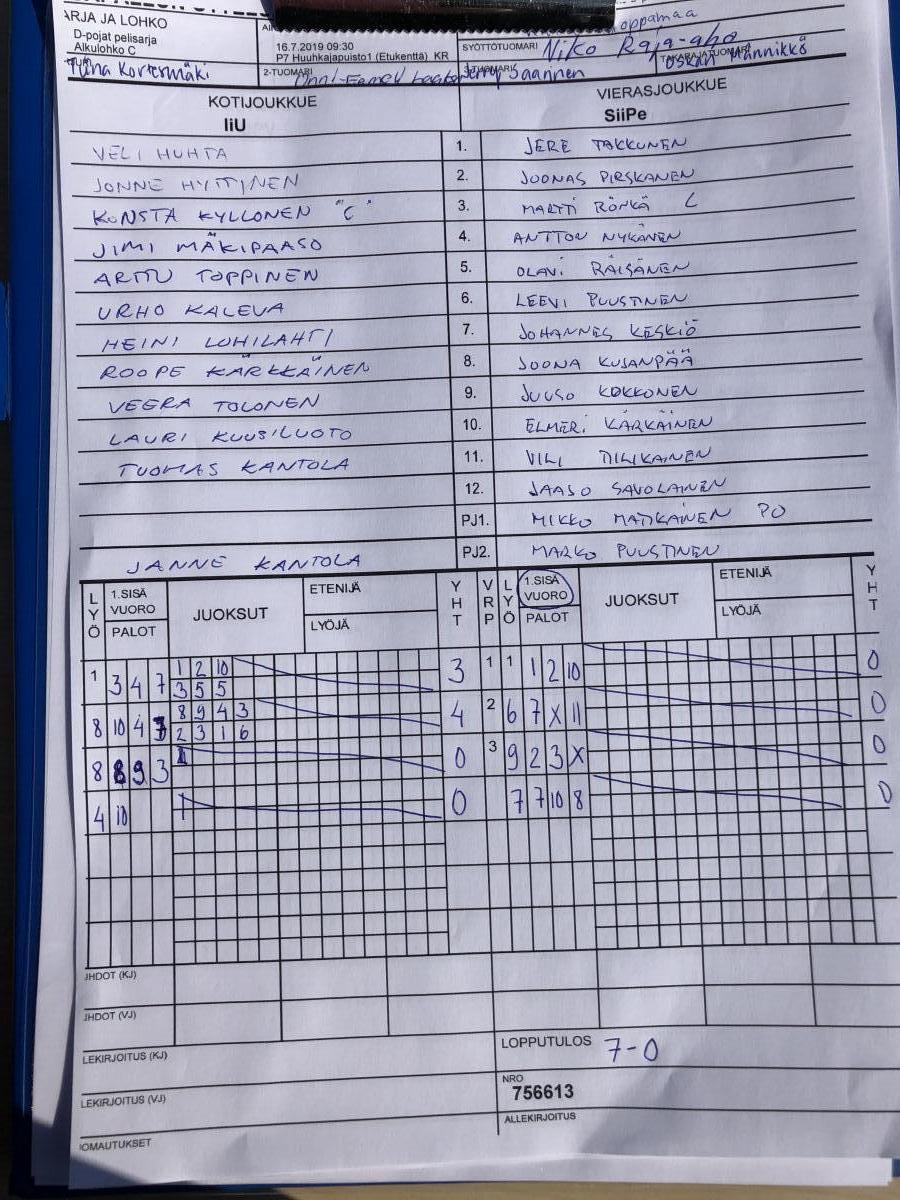 ARJA JA LOHKO
D-pojat pelisarja
Alkulohko C
16.7.2019 09:30
P7 Huuhkajapuisto1 (Etukenttä) KR
SYÖTTÖTUOMARI
Niko Raja-aho
Kortermäki
2-TUOMARI
3-TUOMARI
Saannen
TAKARAJATUOMARI
Oskari Männikkö
KOTIJOUKKUE
IiU
VIERASJOUKKUE
SiiPe
VELI HUHTA 1. JERE TAKKUNEN
JONNE HYTTINEN 2. JOONAS PIRSKANEN
KONSTA KYLLONEN "C" 3. MARTTI RÖNKÄ C
JIMI MÄKIPAASO 4. ANTTON NYKÄNEN
ARTTU TOPPINEN 5. OLAVI RÄISÄNEN
URHO KALEVA 6. LEEVI PUUSTINEN
HEINI LOHILAHTI 7. JOHANNES KESKIÖ
ROOPE KÄRKKÄINEN 8. JOONA KUJANPÄÄ
VEERA TOLONEN 9. JUUSO KOKKONEN
LAURI KUUSILUOTO 10. ELMERI KÄRKÄINEN
TUOMAS KANTOLA 11. VILI TILIKAINEN
12. JAASO SAVOLAINEN
PJ1. MIKKO MATIKAINEN PO
JANNE KANTOLA PJ2. MARKO PUUSTINEN
LYÖ 1.SISÄ VUORO PALOT JUOKSUT ETENIJÄ LYÖJÄ YHT VRP LYÖ 1.SISÄ VUORO PALOT JUOKSUT ETENIJÄ LYÖJÄ YHT
1 3 4 7 1 2 10 3 1 1 1 2 10 0
3 5 5
8 10 4 8 9 4 3 4 2 6 7 X 11 0
2 3 1 6
8 8 9 3 0 3 9 2 3 X 0
4 10 0 7 7 10 8 0
JHDOT (KJ)
JHDOT (VJ)
LEKIRJOITUS (KJ)
LOPPUTULOS 7-0
LEKIRJOITUS (VJ)
NRO
756613
ALLEKIRJOITUS
OMAUTUKSET